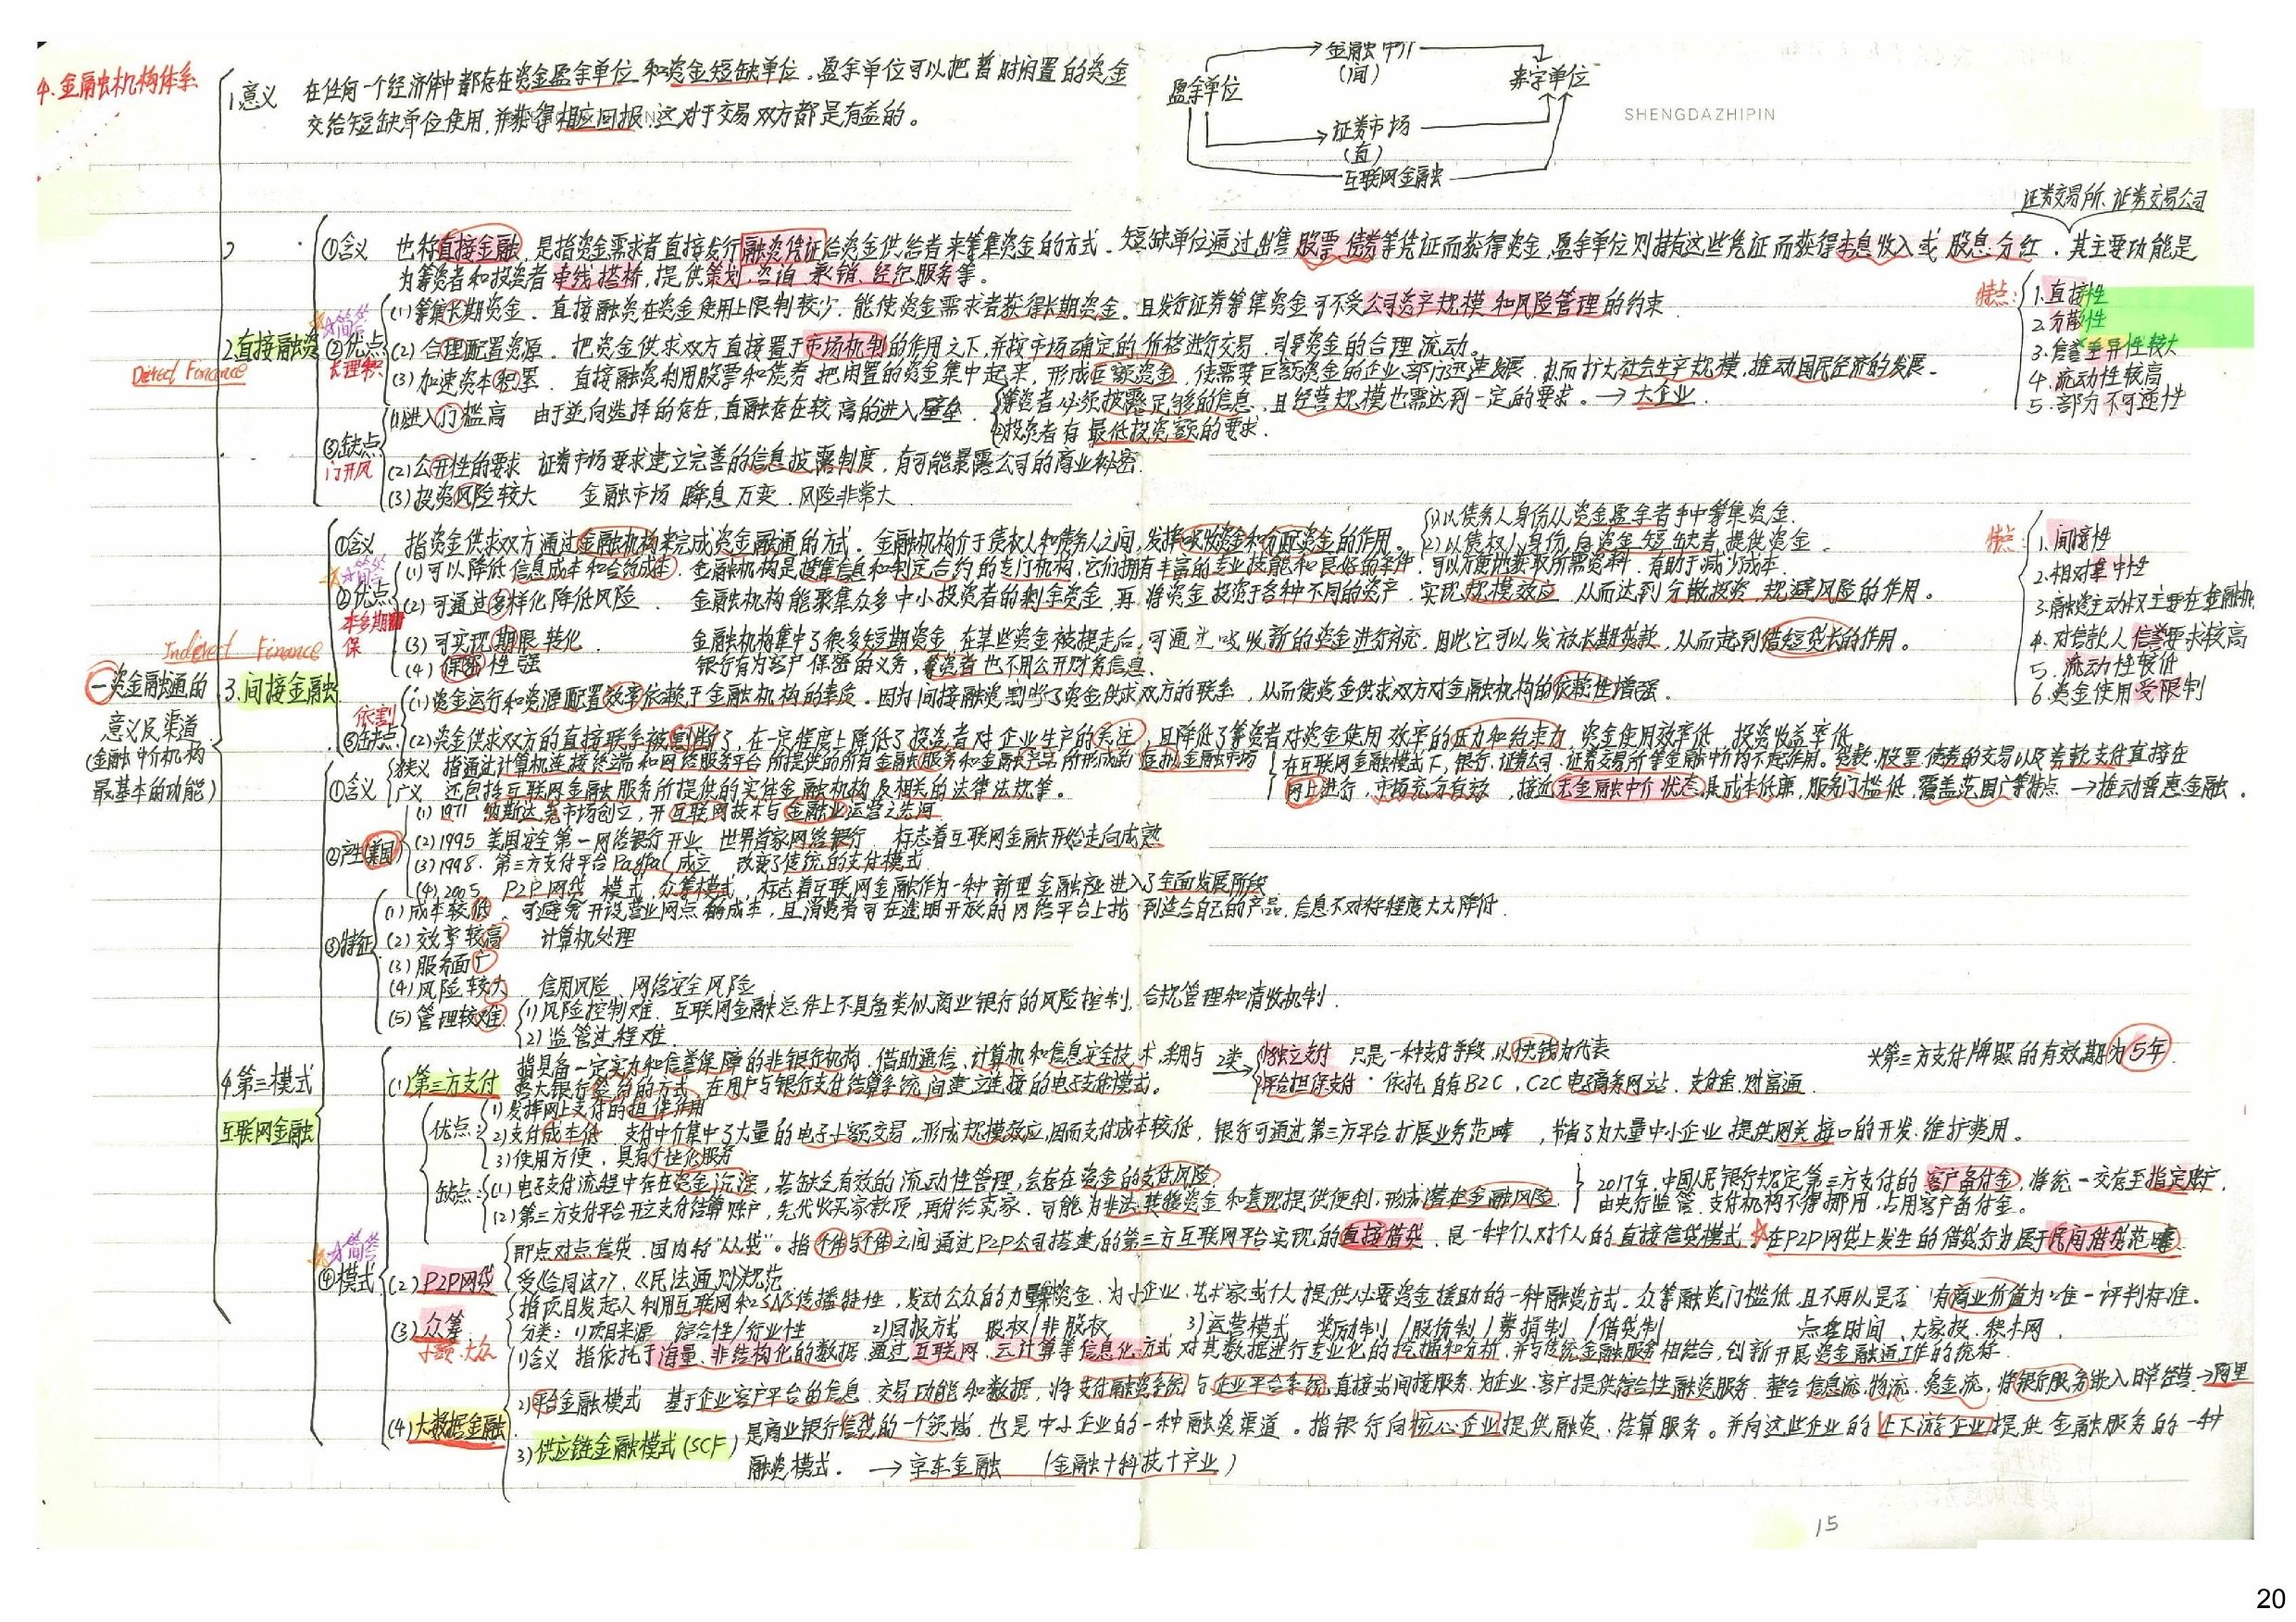 4.金融机构体系
1.意义 在任何一个经济体中都存在资金盈余单位和资金短缺单位。盈余单位可以把暂时闲置的资金
交给短缺单位使用,并获得相应回报,这对于交易双方都是有益的。
金融中介
(间)
盈余单位
赤字单位
证券市场
(直)
互联网金融
SHENGDAZHIPIN
证券交易所、证券交易公司
①含义 也称直接金融,是指资金需求者直接发行融资凭证给资金供给者来筹集资金的方式。短缺单位通过出售股票、债券等凭证而获得资金,盈余单位则持有这些凭证而获得本息收入或股息分红.其主要功能是
为筹资者和投资者牵线搭桥,提供策划、咨询、承销、经纪服务等。
2.直接融资
Direct Finance
☆简答
②优点
长理积
(1)筹集长期资金. 直接融资在资金使用上限制较少.能使资金需求者获得长期资金.且发行证券筹集资金可不受公司资产规模和风险管理的约束
(2)合理配置资源. 把资金供求双方直接置于市场机制的作用之下,并按市场确定的价格进行交易.引导资金的合理流动。
(3)加速资本积累. 直接融资利用股票和债券把闲置的资金集中起来,形成巨额资金,使需要巨额资金的企业、部门迅速发展.从而扩大社会生产规模,推动国民经济的发展.
特点:
1.直接性
2.分散性
3.信誉差异性较大
4.流动性较高
5.部分不可逆性
③缺点
门开风
(1)进入门槛高 由于逆向选择的存在,直融存在较高的进入壁垒.
筹资者必须披露足够的信息,且经营规模也需达到一定的要求。→大企业.
投资者有最低投资额的要求.
(2)公开性的要求 证券市场要求建立完善的信息披露制度,有可能暴露公司的商业秘密.
(3)投资风险较大 金融市场瞬息万变.风险非常大
①含义 指资金供求双方通过金融机构来完成资金融通的方式.金融机构介于债权人和债务人之间,发挥吸收资金和分配资金的作用。
(1)以债务人身份从资金盈余者手中筹集资金.
(2)以债权人身份向资金短缺者提供资金.
☆简答
②优点
本多期保
(1)可以降低信息成本和合约成本.金融机构是搜集信息和制定合约的专门机构,它们拥有丰富的专业技能和良好的条件.可以方便地获取所需资料.有助于减少成本.
(2)可通过多样化降低风险. 金融机构能聚集众多中小投资者的剩余资金,再将资金投资于各种不同的资产.实现规模效应.从而达到分散投资、规避风险的作用。
(3)可实现期限转化. 金融机构集中了很多短期资金,在某些资金被提走后,可通过吸收新的资金进行补充,因此它可以发放长期贷款,从而起到借短贷长的作用。
(4)保密性强 银行有为客户保密的义务,筹资者也不用公开财务信息.
特点:
1.间接性
2.相对集中性
3.融资主动权主要在金融机
4.对借款人信誉要求较高
5.流动性较低
6.资金使用受限制
Indirect Finance
3.间接金融
一、资金融通的
意义及渠道
(金融中介机构
最基本的功能)
依割
③缺点
(1)资金运行和资源配置效率依赖于金融机构的素质.因为间接融资割断了资金供求双方的联系,从而使资金供求双方对金融机构的依赖性增强.
(2)资金供求双方的直接联系被割断了,在一定程度上降低了投资者对企业生产的关注,且降低了筹资者对资金使用效率的压力和约束力.资金使用效率低.投资收益率低
①含义
狭义 指通过计算机连接终端和网络服务平台所提供的所有金融服务和金融产品所形成的虚拟金融市场
广义 还包括互联网金融服务所提供的实体金融机构及相关的法律法规等。
在互联网金融模式下,银行、证券公司、证券交易所等金融中介均不起作用。贷款、股票、债券的交易以及券款支付直接在
网上进行.市场充分有效,接近无金融中介状态.具成本低廉,服务门槛低,覆盖范围广等特点 →推动普惠金融.
②产生(美国)
(1)1971 纳斯达克市场创立,开互联网技术与金融业运营之先河
(2)1995 美国安全第一网络银行开业 世界首家网络银行 标志着互联网金融开始走向成熟
(3)1998.第三方支付平台PayPal成立 改变了传统的支付模式.
(4)2005 P2P网贷模式、众筹模式,标志着互联网金融作为一种新型金融产业进入了全面发展阶段
③特征
(1)成本较低.可避免开设营业网点的成本,且消费者可在透明开放的网络平台上找到适合自己的产品,信息不对称程度大大降低.
(2)效率较高 计算机处理
(3)服务面广
(4)风险较大 信用风险、网络安全风险
(5)管理较难
(1)风险控制难.互联网金融总体上不具备类似商业银行的风险控制、合规管理和清收机制.
(2)监管过程难.
4.第三模式
互联网金融
☆简答
④模式
(1)第三方支付
指具备一定实力和信誉保障的非银行机构.借助通信、计算机和信息安全技术,采用与
各大银行签约的方式.在用户与银行支付结算系统间建立连接的电子支付模式。
2类→
独立支付 只是一种支付手段,以快钱为代表
平台担保支付:依托自有B2C,C2C电子商务网站.支付宝、财富通.
*第三方支付牌照的有效期为5年.
优点:
1)发挥网上支付的担保作用
2)支付成本低 支付中介集中了大量的电子小额交易,形成规模效应,因而支付成本较低,银行可通过第三方平台扩展业务范畴,节省了为大量中小企业提供网关接口的开发、维护费用。
3)使用方便,具有个性化服务
缺点:
(1)电子支付流程中存在资金沉淀,若缺乏有效的流动性管理,会存在资金的支付风险.
(2)第三方支付平台开立支付结算账户,先代收买家款项,再付给卖家.可能为非法转移资金和套现提供便利,形成潜在金融风险.
2017年,中国人民银行规定第三方支付的客户备付金,将统一交存至指定账户,
由央行监管.支付机构不得挪用、占用客户备付金。
(2)P2P网贷
即点对点信贷.国内称“人人贷”。指个体与个体之间通过P2P公司搭建的第三方互联网平台实现的直接借贷.是一种个人对个人的直接信贷模式.☆在P2P网贷上发生的借贷行为属于民间借贷范畴
受《合同法》、《民法通则》规范
(3)众筹
小额、大众
指项目发起人利用互联网和SNS传播特性,发动公众的力量,集资金.为小企业、艺术家或个人提供必要资金援助的一种融资方式.众筹融资门槛低且不再以是否有商业价值为唯一评判标准.
分类:1)项目来源 综合性/行业性 2)回报方式 股权/非股权 3)运营模式 奖励制/股份制/募捐制/借贷制 点名时间、大家投、积木网.
(4)大数据金融
1)含义 指依托于海量、非结构化的数据,通过互联网、云计算等信息化方式对其数据进行专业化的挖掘和分析,并与传统金融服务相结合,创新开展资金融通工作的统称.
2)平台金融模式 基于企业客户平台的信息、交易功能和数据,将支付融资系统与企业平台系统直接或间接服务.为企业、客户提供综合性融资服务.整合信息流、物流、资金流,将银行服务嵌入日常经营→阿里
3)供应链金融模式(SCF) 是商业银行信贷的一个领域.也是中小企业的一种融资渠道。指银行向核心企业提供融资、结算服务。并向这些企业的上下游企业提供金融服务的一种
融资模式. →京东金融 (金融+科技+产业)
15
20